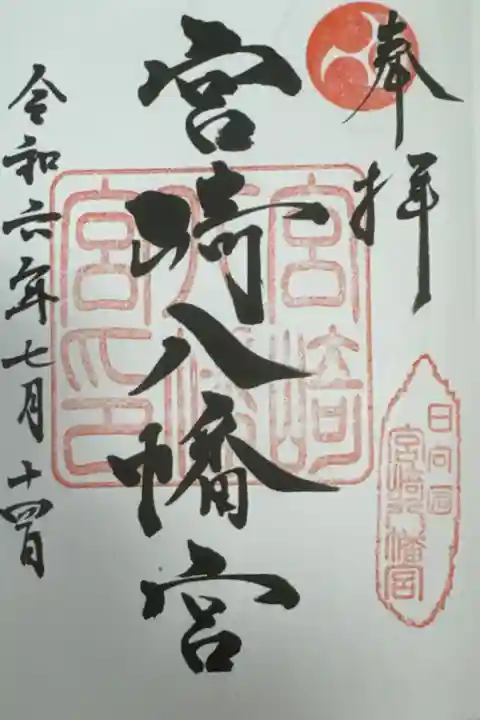 奉拝
日向国
宮崎八幡宮
宮崎八幡宮
宮崎
八幡
宮印
令和六年七月十四日